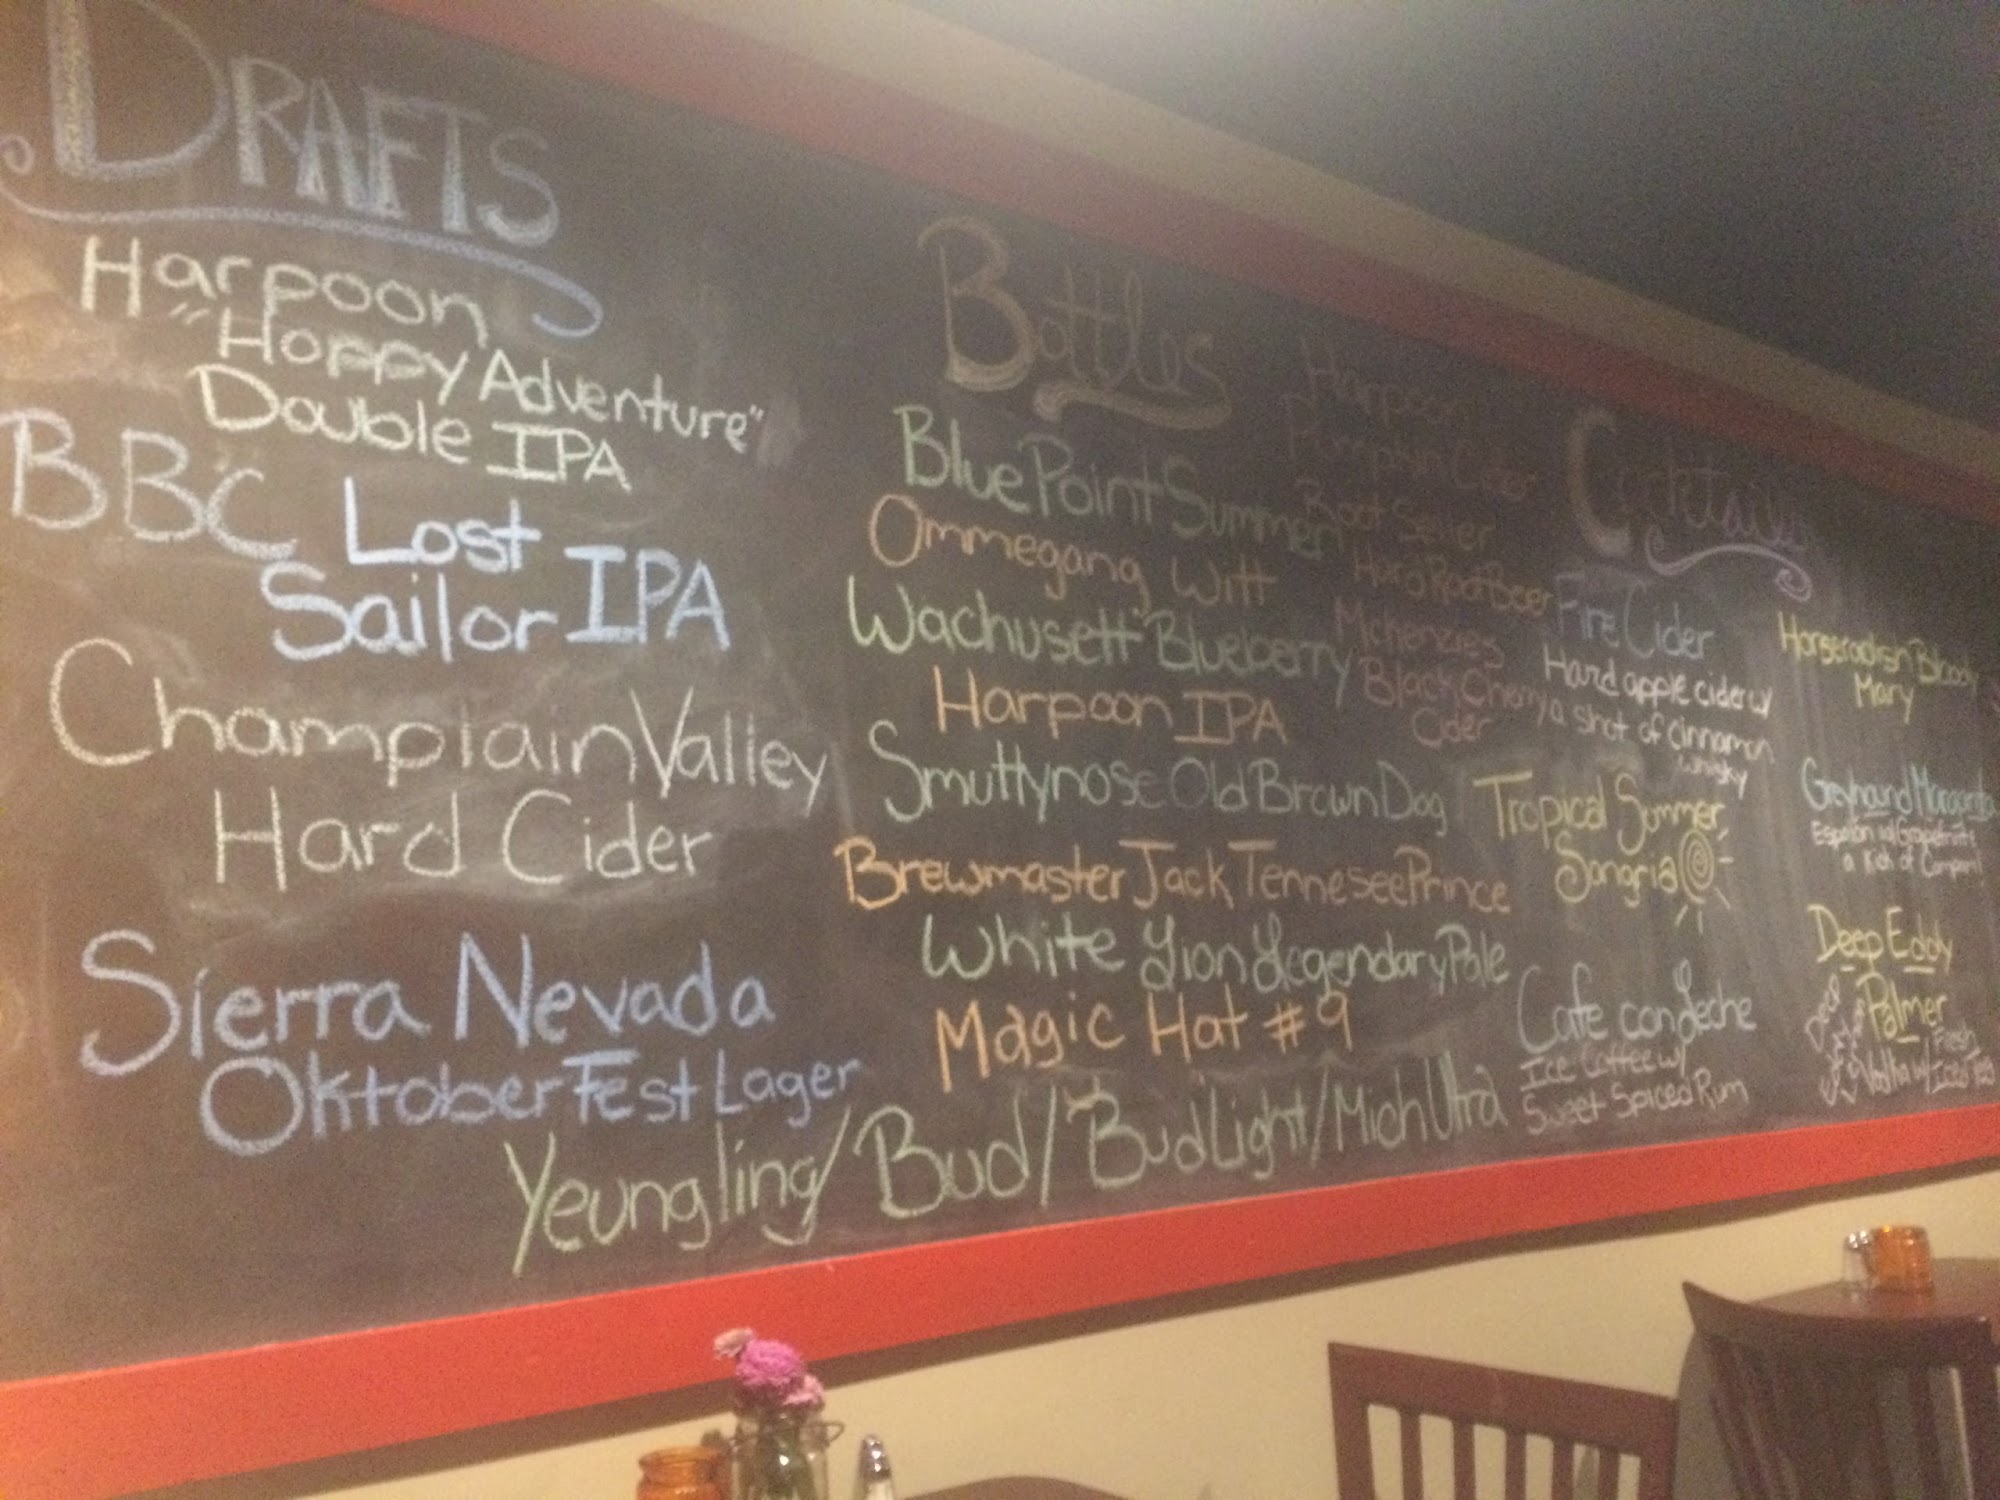 DRAFTS
Harpoon
"Hoppy Adventure"
Double IPA
BBC Lost
Sailor IPA
Champlain Valley
Hard Cider
Sierra Nevada
Oktoberfest Lager
Bottles
Blue Point Summer
Ommegang Witt
Wachusett Blueberry
Harpoon IPA
Smuttynose Old Brown Dog
Brewmaster Jack Tennesee Prince
White Lion Legendary Pale
Magic Hat #9
Yeungling/Bud/Bud Light/Mich Ultra
Harpoon
Pumpkin Cider
Root Seller
Hard Root Beer
McKenzies
Black Cherry
Cider
Cocktails
Fire Cider
Hard apple cider w/
a shot of cinnamon
whisky
Tropical Summer
Sangria
Cafe con Leche
Ice Coffee w/
Sweet Spiced Rum
Horseradish Bloody
Mary
Greyhound Margarita
Espolón w/ Grapefruit &
a kick of Campari!
Deep Eddy
Palmer
Deep
Vodka w/
Fresh
Iced Tea